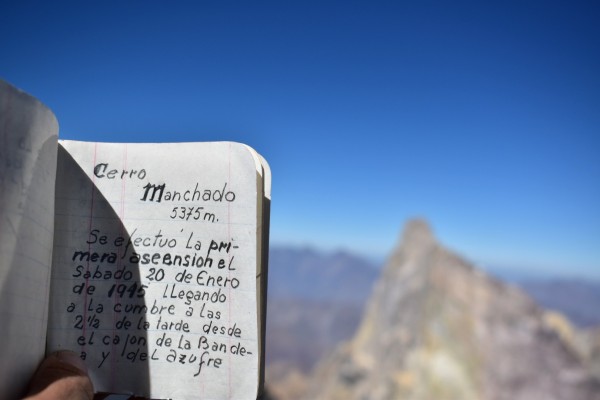 Cerro
Manchado
5375 m.
Se efectuó La pri-
mera asension el
Sabado 20 de Enero
de 1945 llegando
a la cumbre a las
2½ de la tarde desde
el cajon de la Bande-
a y del azufre